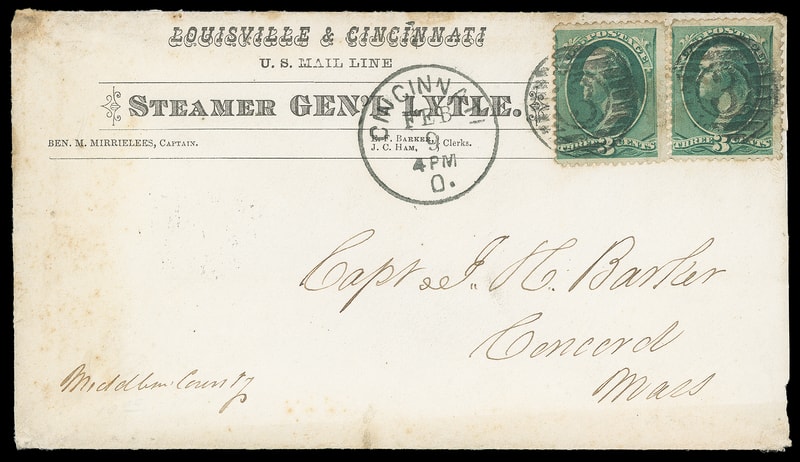 LOUISVILLE & CINCINNATI
U. S. MAIL LINE
STEAMER GEN'L LYTLE.
BEN. M. MIRRIELEES, CAPTAIN.
E. F. BARKER,
J. C. HAM,
Clerks.
CINCINNATI
FEB
9
4 PM
O.
POSTAGE
THREE 3 CENTS
POSTAGE
THREE 3 CENTS
Capt J. H. Barker
Concord
Mass
County